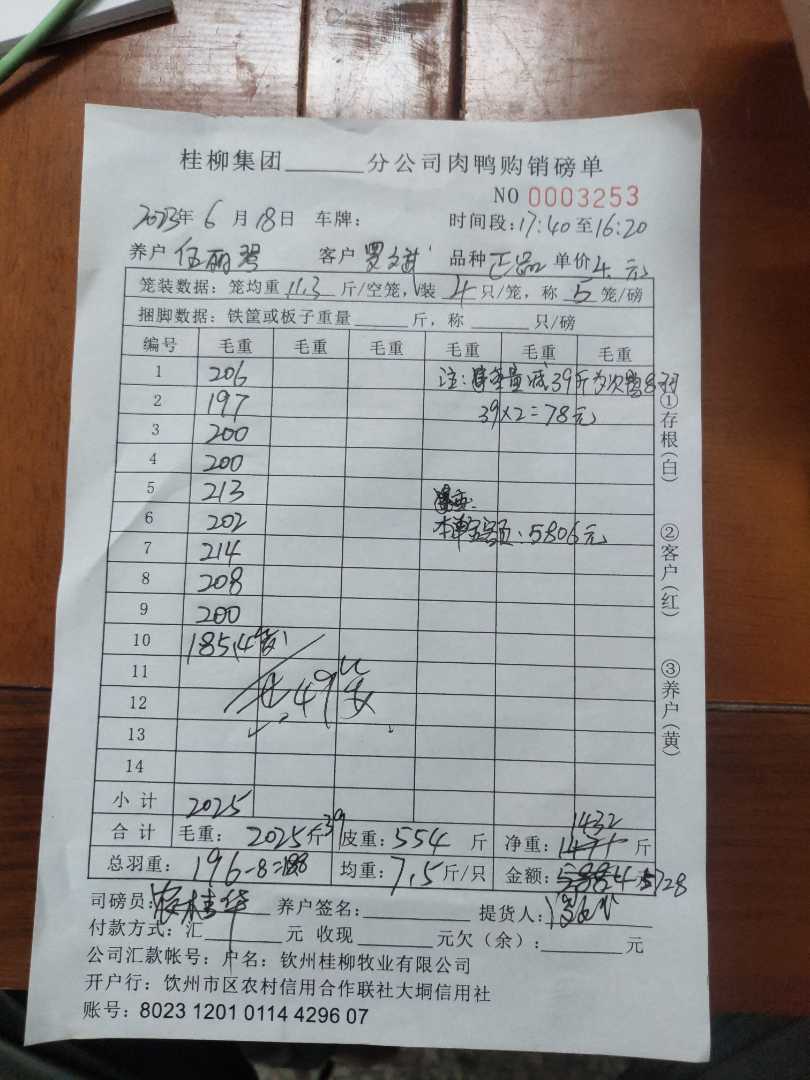 桂柳集团______分公司肉鸭购销磅单
NO 0003253
2023年 6 月 18日 车牌: 时间段:17:40至16:20
养户 伍丽 客户 罗文 品种 正品 单价4元
笼装数据: 笼均重 11.3 斤/空笼, 装 4 只/笼, 称 5 笼/磅
捆脚数据: 铁筐或板子重量______斤, 称______只/磅
编号 毛重 毛重 毛重 毛重 毛重 毛重
1 206 注: 重量减39斤为次鸭8羽
2 197 39×2=78元
3 200
4 200
5 213
6 202 本单金额: 5806元
7 214
8 208
9 200
10 185(4笼)
11
12 共49笼
13
14
小 计 2025
合 计 毛重: 2025斤 39 皮重: 554 斤 净重: 1471 1432 斤
总羽重: 196-8=188 均重: 7.5斤/只 金额: 5884 5728
司磅员: 桂华 养户签名: 提货人:
付款方式: 汇______元 收现______元欠(余):______元
公司汇款帐号: 户名: 钦州桂柳牧业有限公司
开户行: 饮州市区农村信用合作联社大垌信用社
账号: 8023 1201 0114 4296 07
①存根(白)
②客户(红)
③养户(黄)